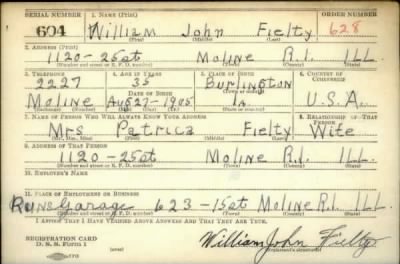 SERIAL NUMBER 1. NAME (Print) ORDER NUMBER
604 William John Fielty 628
(First) (Middle) (Last)
2. ADDRESS (Print)
1120-25st Moline R.I. ILL.
(Number and street or R. F. D. number) (Town) (County) (State)
3. TELEPHONE 4. AGE IN YEARS 5. PLACE OF BIRTH 6. COUNTRY OF CITIZENSHIP
2227 35 Burlington
DATE OF BIRTH (Town or county)
Moline Aug 27-1905 Ia. U.S.A.
(Exchange) (Number) (Mo.) (Day) (Yr.) (State or country)
7. NAME OF PERSON WHO WILL ALWAYS KNOW YOUR ADDRESS 8. RELATIONSHIP OF THAT PERSON
Mrs Patricca Fielty Wife
(Mr., Mrs., Miss) (First) (Middle) (Last)
9. ADDRESS OF THAT PERSON
1120-25st Moline R.I. ILL.
(Number and street or R. F. D. number) (Town) (County) (State)
10. EMPLOYER'S NAME
11. PLACE OF EMPLOYMENT OR BUSINESS
Runs Garage 623-15st Moline R.I. ILL
(Number and street or R. F. D. number) (Town) (County) (State)
I AFFIRM THAT I HAVE VERIFIED ABOVE ANSWERS AND THAT THEY ARE TRUE.
REGISTRATION CARD
D. S. S. Form 1 William John Fielty
(Registrant's signature)